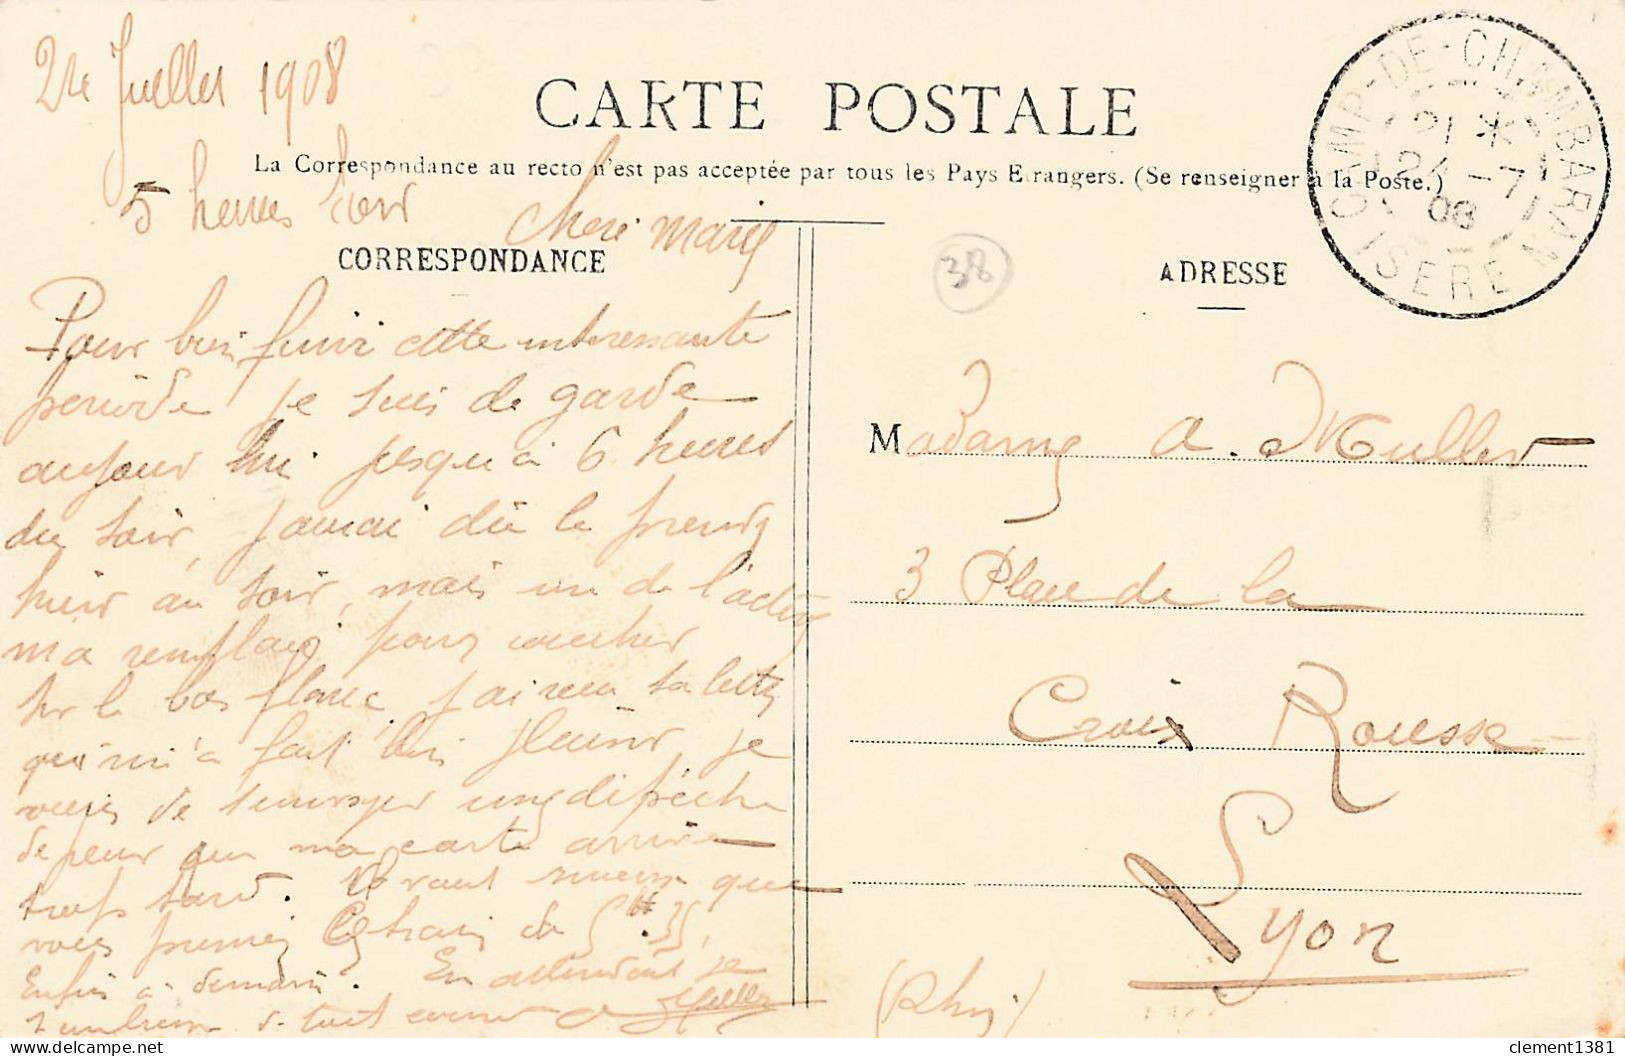 24 Juillet 1908
CARTE POSTALE
La Correspondance au recto n'est pas acceptée par tous les Pays Etrangers. (Se renseigner à la Poste.)
5 heures soir
Cheri Marie
CAMP-DE-CHAMBARAN
21 *
24 -7
08
ISERE
CORRESPONDANCE
38
ADRESSE
Pour bien finir cette interessante
periode je suis de garde
aujour hui jusqu'à 6 heures
du soir, jamai dû la prendre
hier au soir, mais un de l'active
m'a remplacé pour coucher
sur le bas flanc, j'ai reçu ta lettre
qui m'a fait bien plaisir, je
viens de t'envoyer une dépêche
de peur que ma carte arrive
trop tard. Il vaut mieux que
vous preniez le train de 5 H. 35,
Enfin à demain. En attendant je
t'embrasse de tout coeur A Muller
Madame A. Muller
3 Place de la
Croix Rousse
Lyon
(Rhône)
clement1381